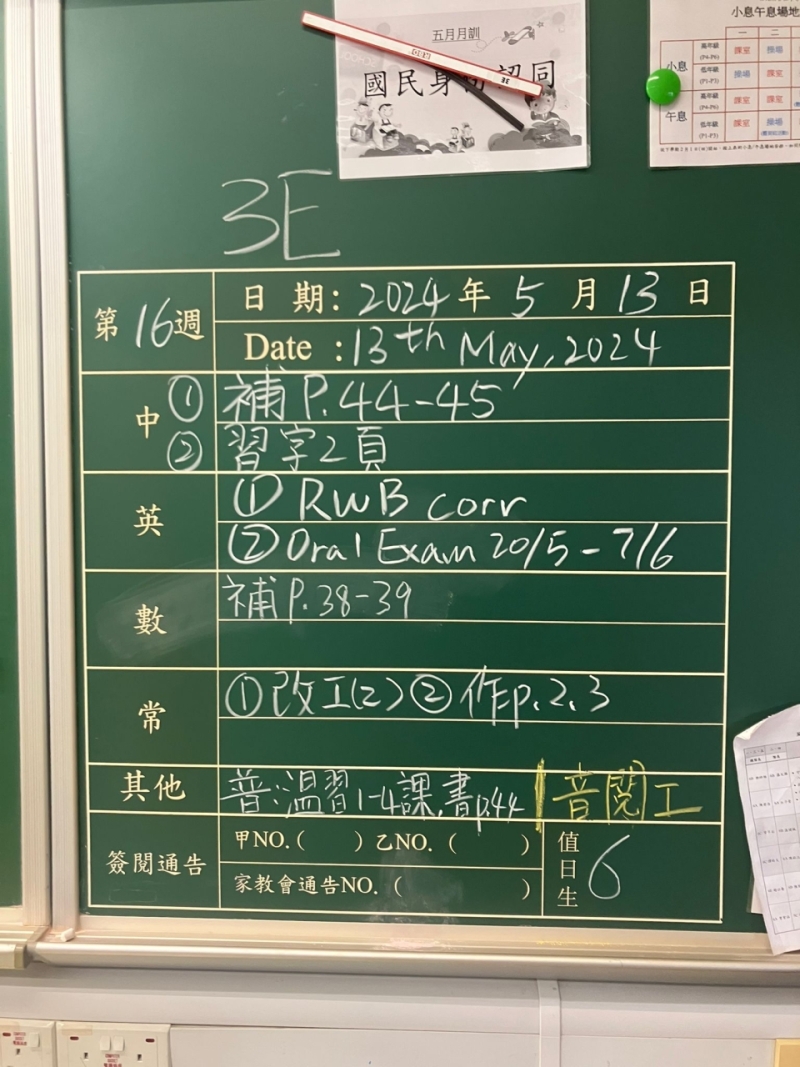 五月月訓
國民身份認同
小息午息場地
一 二
小息
高年級
(P4-P6)
課室 操場
低年級
(P1-P3)
操場 課室
午息
高年級
(P4-P6)
課室 課室
低年級
(P1-P3)
課室 操場
3E
第16週
日 期: 2024 年 5 月 13 日
Date : 13th May, 2024
中 ① 補 P.44-45
② 習字2頁
英 ① RWB corr
② Oral Exam 20/5-7/6
數 補 P.38-39
常 ① 改工(2) ② 作p.2,3
其他 普:溫習1-4課,書p.44 音閱工
簽閱通告 甲NO.( ) 乙NO. ( )
家教會通告NO. ( )
值日生 6